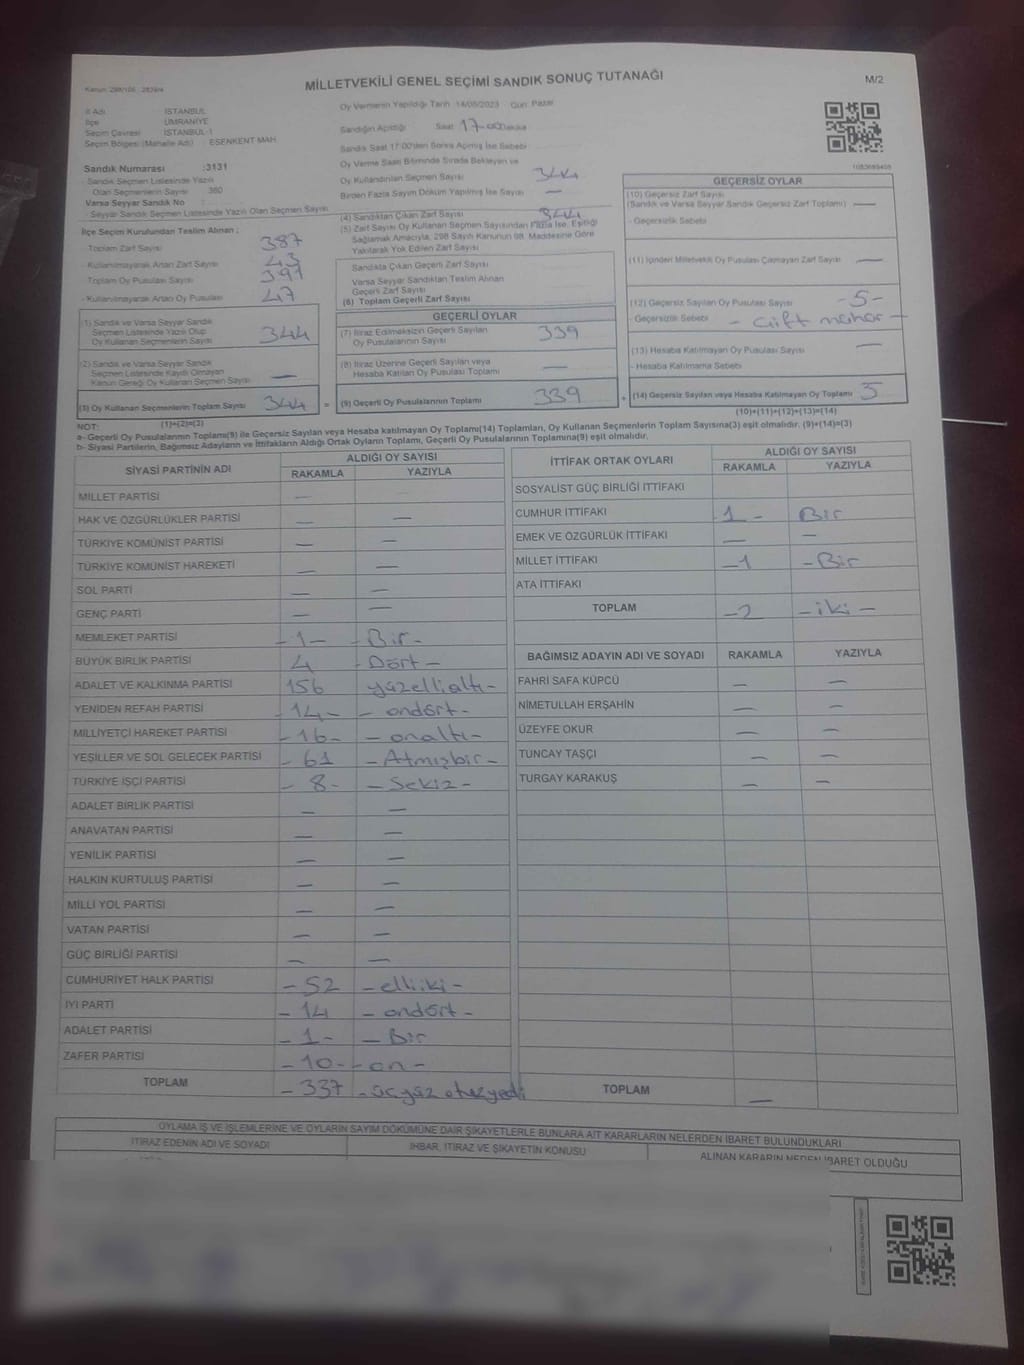 MİLLETVEKİLİ GENEL SEÇİMİ SANDIK SONUÇ TUTANAĞI
M/2
İl Adı : İSTANBUL
İlçe : ÜMRANİYE
Seçim Çevresi : İSTANBUL-1
Seçim Bölgesi (Mahalle Adı) : ESENKENT MAH
Sandık Numarası :3131
- Sandık Seçmen Listesinde Yazılı
Olan Seçmenlerin Sayısı : 380
Varsa Seyyar Sandık No :
- Seyyar Sandık Seçmen Listesinde Yazılı Olan Seçmen Sayısı
İlçe Seçim Kurulundan Teslim Alınan ;
- Toplam Zarf Sayısı 387
- Kullanılmayarak Artan Zarf Sayısı 43
- Toplam Oy Pusulası Sayısı 391
- Kullanılmayarak Artan Oy Pusulası 47
(1) Sandık ve Varsa Seyyar Sandık
Seçmen Listesinde Yazılı Olup
Oy Kullanan Seçmenlerin Sayısı 344
(2) Sandık ve Varsa Seyyar Sandık
Seçmen Listesinde Kaydı Olmayan
Kanun Gereği Oy Kullanan Seçmen Sayısı —
(3) Oy Kullanan Seçmenlerin Toplam Sayısı 344 =
Oy Vermenin Yapıldığı Tarih 14/05/2023 Gün: Pazar
Sandığın Açıldığı Saat 17:00 Dakika
Sandık Saat 17:00'den Sonra Açılmış İse Sebebi
Oy Verme Saati Bitiminde Sırada Bekleyen ve
Oy Kullandırılan Seçmen Sayısı 344
Birden Fazla Sayım Döküm Yapılmış İse Sayısı —
(4) Sandıktan Çıkan Zarf Sayısı 344
(5) Zarf Sayısı Oy Kullanan Seçmen Sayısından Fazla İse, Eşitliği
Sağlamak Amacıyla, 298 Sayılı Kanunun 98. Maddesine Göre
Yakılarak Yok Edilen Zarf Sayısı
Sandıkta Çıkan Geçerli Zarf Sayısı
Varsa Seyyar Sandıktan Teslim Alınan
Geçerli Zarf Sayısı
(6) Toplam Geçerli Zarf Sayısı
GEÇERLİ OYLAR
(7) İtiraz Edilmeksizin Geçerli Sayılan
Oy Pusulalarının Sayısı 339
(8) İtiraz Üzerine Geçerli Sayılan veya
Hesaba Katılan Oy Pusulası Toplamı —
(9) Geçerli Oy Pusulalarının Toplamı 339 +
1083089408
GEÇERSİZ OYLAR
(10) Geçersiz Zarf Sayısı
(Sandık ve Varsa Seyyar Sandık Geçersiz Zarf Toplamı) —
- Geçersizlik Sebebi
(11) İçinden Milletvekili Oy Pusulası Çıkmayan Zarf Sayısı —
(12) Geçersiz Sayılan Oy Pusulası Sayısı -5-
- Geçersizlik Sebebi - Çift mühür -
(13) Hesaba Katılmayan Oy Pusulası Sayısı —
- Hesaba Katılmama Sebebi
(14) Geçersiz Sayılan veya Hesaba Katılmayan Oy Toplamı 5
(10)+(11)+(12)+(13)=(14)
NOT: (1)+(2)=(3)
a- Geçerli Oy Pusulalarının Toplamı(9) ile Geçersiz Sayılan veya Hesaba Katılmayan Oy Toplamı(14) Toplamları, Oy Kullanan Seçmenlerin Toplam Sayısına(3) eşit olmalıdır. (9)+(14)=(3)
b- Siyasi Partilerin, Bağımsız Adayların ve İttifakların Aldığı Ortak Oyların Toplamı, Geçerli Oy Pusulalarının Toplamına(9) eşit olmalıdır.
SİYASİ PARTİNİN ADI ALDIĞI OY SAYISI
RAKAMLA YAZIYLA
MİLLET PARTİSİ —
HAK VE ÖZGÜRLÜKLER PARTİSİ — —
TÜRKİYE KOMÜNİST PARTİSİ — —
TÜRKİYE KOMÜNİST HAREKETİ — —
SOL PARTİ — —
GENÇ PARTİ — —
MEMLEKET PARTİSİ -1- -Bir-
BÜYÜK BİRLİK PARTİSİ 4 -Dört-
ADALET VE KALKINMA PARTİSİ 156 yüzellialtı-
YENİDEN REFAH PARTİSİ -14- -ondört-
MİLLİYETÇİ HAREKET PARTİSİ -16- -onaltı-
YEŞİLLER VE SOL GELECEK PARTİSİ -61 -Atmışbir-
TÜRKİYE İŞÇİ PARTİSİ -8- -Sekiz-
ADALET BİRLİK PARTİSİ — —
ANAVATAN PARTİSİ — —
YENİLİK PARTİSİ — —
HALKIN KURTULUŞ PARTİSİ — —
MİLLİ YOL PARTİSİ — —
VATAN PARTİSİ — —
GÜÇ BİRLİĞİ PARTİSİ — —
CUMHURİYET HALK PARTİSİ -52 -elliiki-
İYİ PARTİ -14 -ondört-
ADALET PARTİSİ -1- -Bir
ZAFER PARTİSİ -10- -on-
TOPLAM -337 -üçyüz otuzyedi
İTTİFAK ORTAK OYLARI ALDIĞI OY SAYISI
RAKAMLA YAZIYLA
SOSYALİST GÜÇ BİRLİĞİ İTTİFAKI
CUMHUR İTTİFAKI 1- Bir
EMEK VE ÖZGÜRLÜK İTTİFAKI — —
MİLLET İTTİFAKI -1 -Bir
ATA İTTİFAKI
TOPLAM -2 -iki-
BAĞIMSIZ ADAYIN ADI VE SOYADI RAKAMLA YAZIYLA
FAHRİ SAFA KÜPCÜ — —
NİMETULLAH ERŞAHİN — —
ÜZEYFE OKUR — —
TUNCAY TAŞÇI — —
TURGAY KARAKUŞ — —
TOPLAM —
OYLAMA İŞ VE İŞLEMLERİNE VE OYLARIN SAYIM DÖKÜMÜNE DAİR ŞİKAYETLERLE BUNLARA AİT KARARLARIN NELERDEN İBARET BULUNDUKLARI
İTİRAZ EDENİN ADI VE SOYADI İHBAR, İTİRAZ VE ŞİKAYETİN KONUSU ALINAN KARARIN NEDEN İBARET OLDUĞU